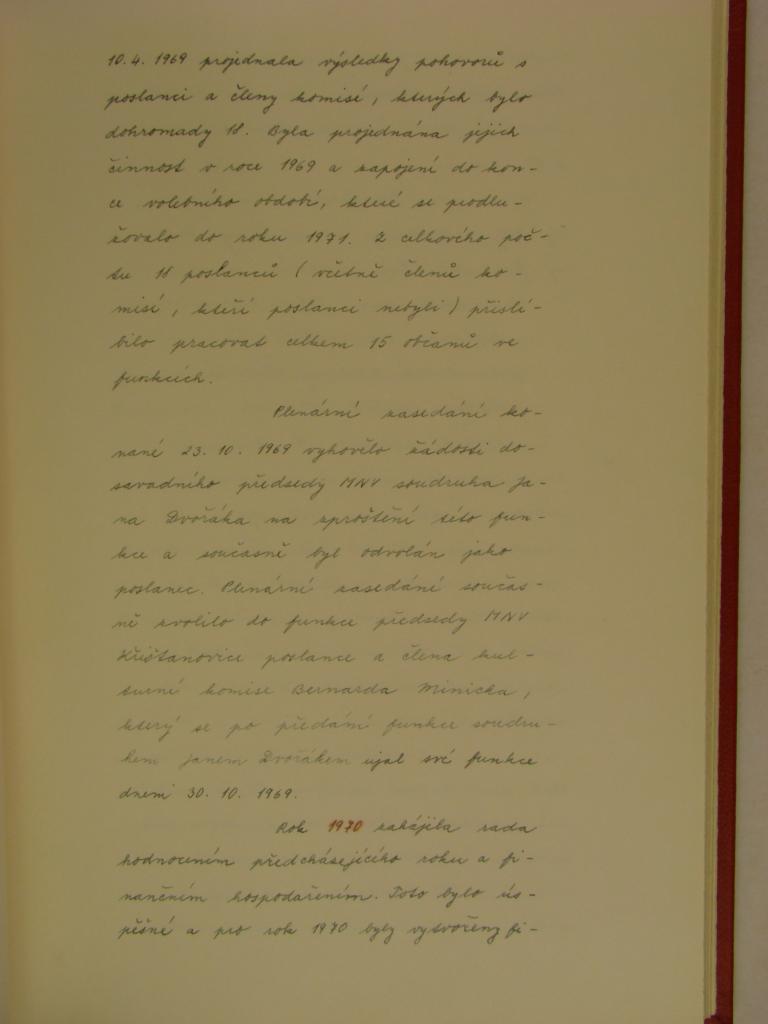 10. 4. 1969 projednala výsledky pohovorů s
poslanci a členy komisí, kterých bylo
dohromady 18. Byla projednána jejich
činnost v roce 1969 a zapojení do kon-
ce volebního období, které se prodlu-
žovalo do roku 1971. Z celkového poč-
tu 18 poslanců (včetně členů ko-
misí, kteří poslanci nebyli) přislí-
bilo pracovat celkem 15 občanů ve
funkcích.
Plenární zasedání ko-
nané 23. 10. 1969 vyhovělo žádosti do-
savadního předsedy MNV soudruha Ja-
na Dvořáka na zproštění této fun-
kce a současně byl odvolán jako
poslanec. Plenární zasedání součas-
ně zvolilo do funkce předsedy MNV
Křišťanovice poslance a člena kul-
turní komise Bernarda Minicka,
který se po předání funkce soudru-
hem Janem Dvořákem ujal své funkce
dnem 30. 10. 1969.
Rok 1970 zahájila rada
hodnocením předcházejícího roku a fi-
nančním hospodařením. Toto bylo ús-
pěšné a pro rok 1970 byly vytvořeny fi-